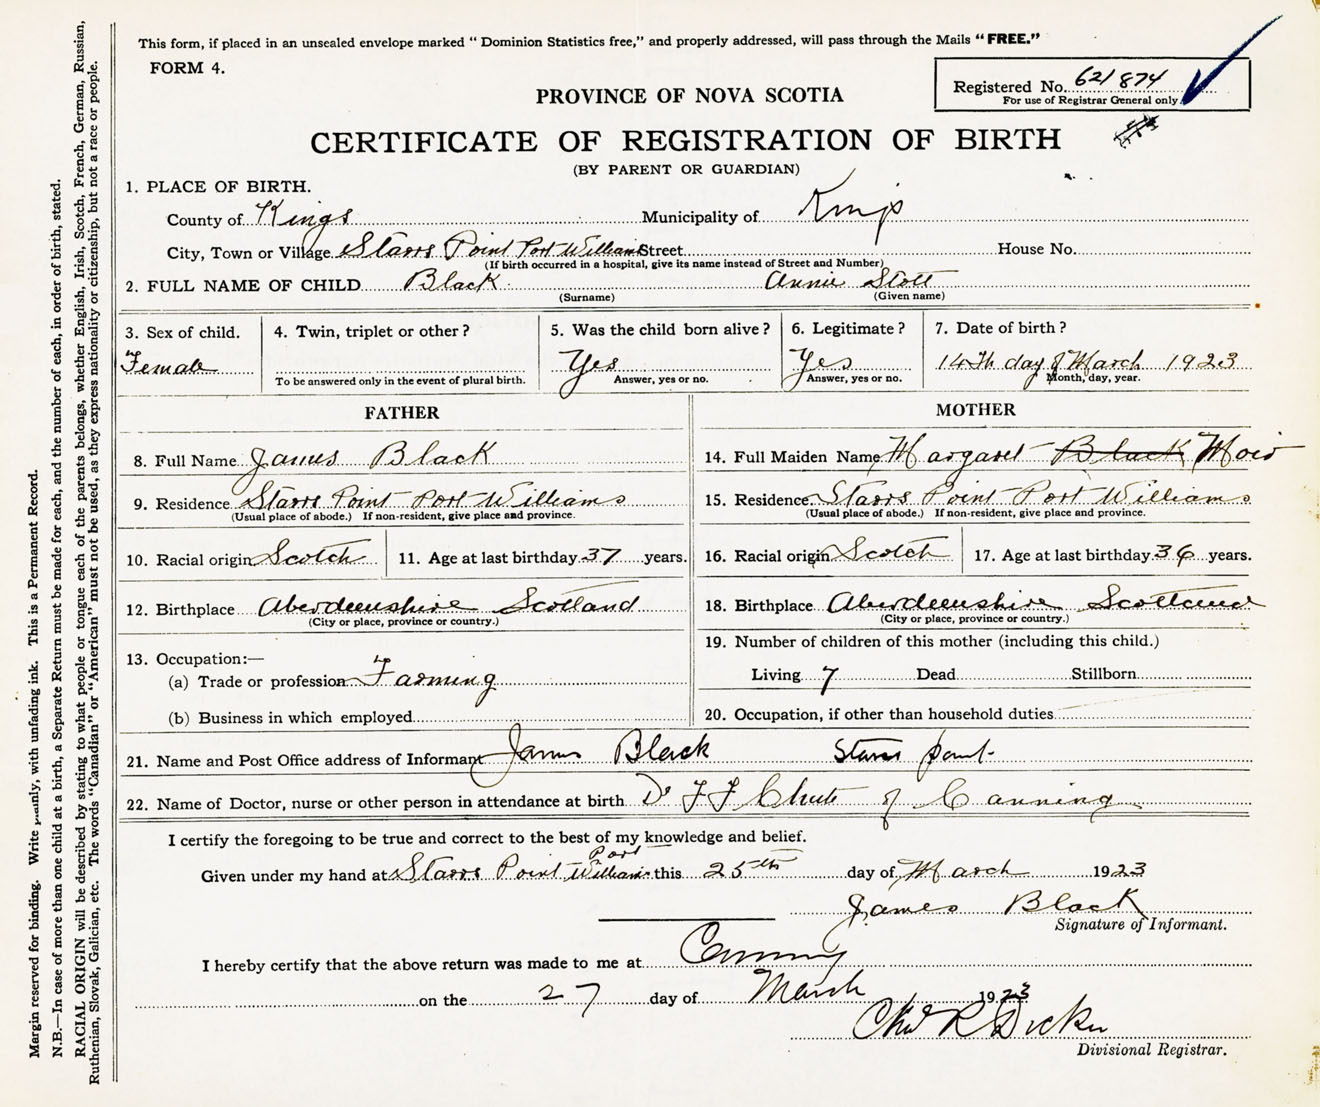 This form, if placed in an unsealed envelope marked " Dominion Statistics free," and properly addressed, will pass through the Mails " FREE."
FORM 4.
Registered No. 621874
For use of Registrar General only.
PROVINCE OF NOVA SCOTIA
CERTIFICATE OF REGISTRATION OF BIRTH
(BY PARENT OR GUARDIAN)
1. PLACE OF BIRTH.
County of Kings Municipality of Kings
City, Town or Village Starrs Point Port Williams Street House No.
(If birth occurred in a hospital, give its name instead of Street and Number)
2. FULL NAME OF CHILD Black Annie Stott
(Surname) (Given name)
3. Sex of child. 4. Twin, triplet or other? 5. Was the child born alive? 6. Legitimate? 7. Date of birth?
Female Yes Yes 14th day of March 1923
To be answered only in the event of plural birth. Answer, yes or no. Answer, yes or no. Month, day, year.
FATHER MOTHER
8. Full Name James Black 14. Full Maiden Name Margaret Black Moir
9. Residence Starrs Point Port Williams 15. Residence Starrs Point Port Williams
(Usual place of abode.) If non-resident, give place and province. (Usual place of abode.) If non-resident, give place and province.
10. Racial origin Scotch 11. Age at last birthday 37 years. 16. Racial origin Scotch 17. Age at last birthday 36 years.
12. Birthplace Aberdeenshire Scotland 18. Birthplace Aberdeenshire Scotland
(City or place, province or country.) (City or place, province or country.)
13. Occupation:— 19. Number of children of this mother (including this child.)
(a) Trade or profession Farming Living 7 Dead Stillborn
(b) Business in which employed 20. Occupation, if other than household duties
21. Name and Post Office address of Informant James Black Starrs Point
22. Name of Doctor, nurse or other person in attendance at birth Dr F F Chute of Canning
I certify the foregoing to be true and correct to the best of my knowledge and belief.
Given under my hand at Starrs Point Port Williams this 25th day of March 1923
James Black
Signature of Informant.
I hereby certify that the above return was made to me at Canning
on the 27 day of March 1923
Chas R Dickie
Divisional Registrar.
Margin reserved for binding. Write plainly, with unfading ink. This is a Permanent Record.
N.B.—In case of more than one child at a birth, a Separate Return must be made for each, and the number of each, in order of birth, stated.
RACIAL ORIGIN will be described by stating to what people or tongue each of the parents belongs, whether English, Irish, Scotch, French, German, Russian,
Ruthenian, Slovak, Galician, etc. The words "Canadian" or "American" must not be used, as they express nationality or citizenship, but not a race or people.